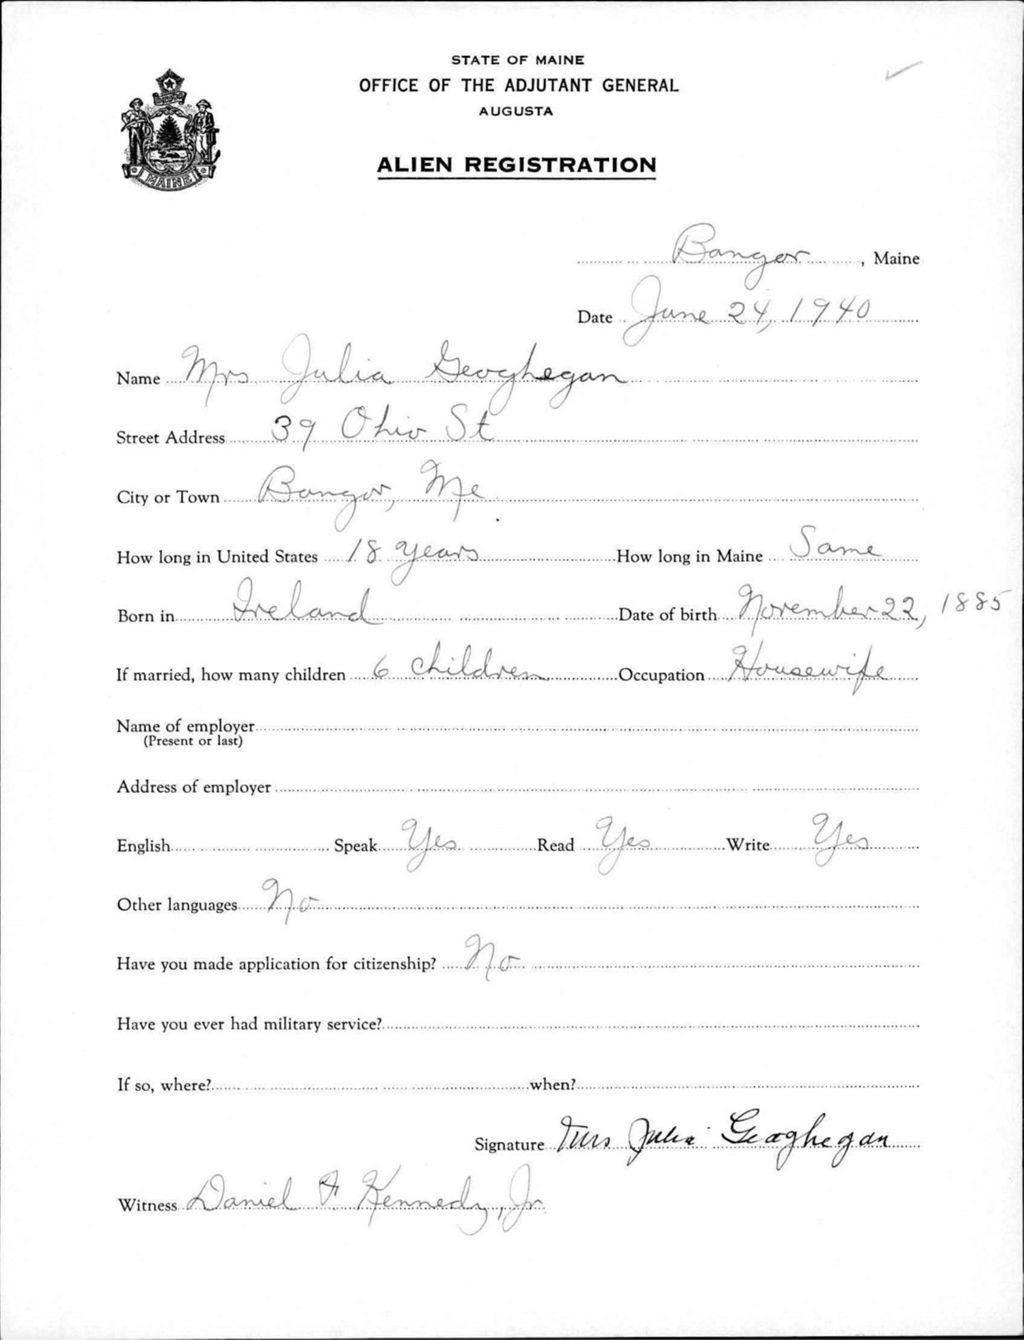 STATE OF MAINE
OFFICE OF THE ADJUTANT GENERAL
AUGUSTA
ALIEN REGISTRATION
MAINE
Bangor, Maine
Date June 24, 1940
Name Mrs Julia Geoghegan
Street Address 39 Ohio St
City or Town Bangor, Me
How long in United States 18 years How long in Maine Same
Born in Ireland Date of birth November 22, 1885
If married, how many children 6 children Occupation Housewife
Name of employer
(Present or last)
Address of employer
English Speak Yes Read Yes Write Yes
Other languages No
Have you made application for citizenship? No
Have you ever had military service?
If so, where? when?
Signature Mrs Julia Geoghegan
Witness Daniel F Kennedy, Jr